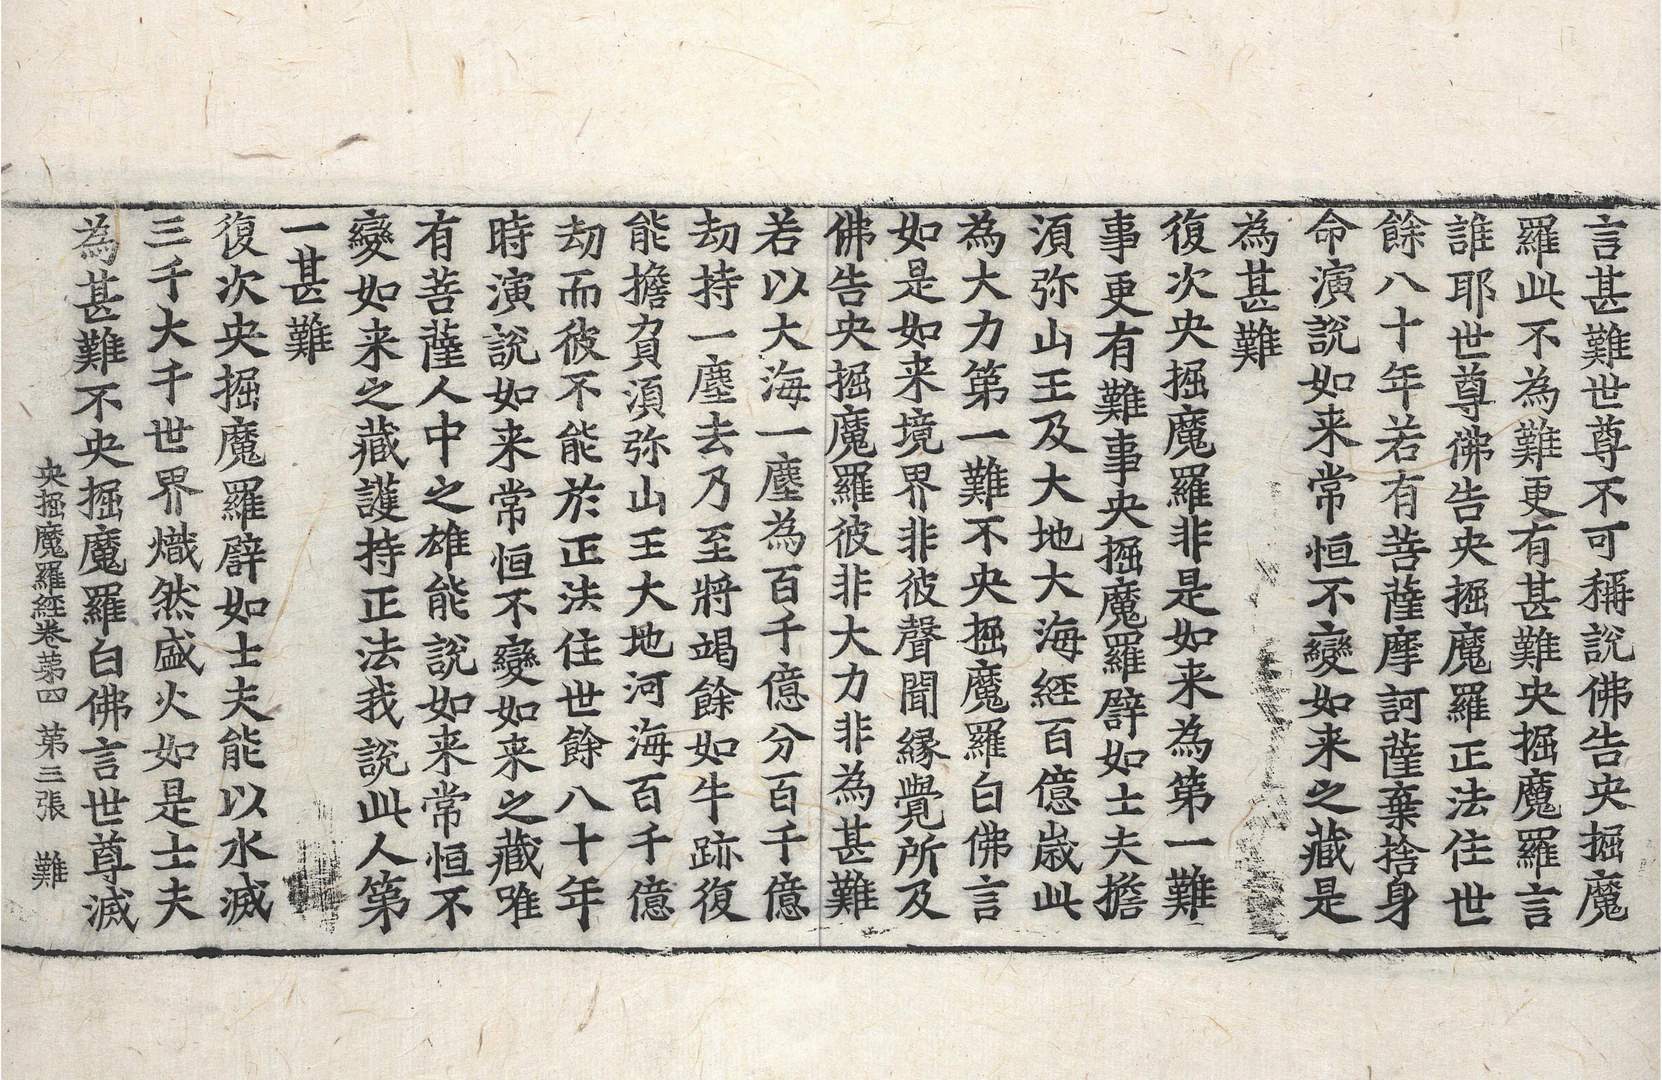 言甚難世尊不可稱說佛告央掘魔
羅此不為難更有甚難央掘魔羅言
誰耶世尊佛告央掘魔羅正法住世
餘八十年若有菩薩摩訶薩棄捨身
命演說如来常恒不變如来之藏是
為甚難
復次央掘魔羅非是如来為第一難
事更有難事央掘魔羅譬如士夫擔
須弥山王及大地大海經百億歲此
為大力第一難不央掘魔羅白佛言
如是如来境界非彼聲聞緣覺所及
佛告央掘魔羅彼非大力非為甚難
若以大海一塵為百千億分百千億
劫持一塵去乃至將竭餘如牛跡復
能擔負須弥山王大地河海百千億
劫而彼不能於正法住世餘八十年
時演說如来常恒不變如来之藏唯
有菩薩人中之雄能說如来常恒不
變如来之藏護持正法我說此人第
一甚難
復次央掘魔羅譬如士夫能以水滅
三千大千世界熾然盛火如是士夫
為甚難不央掘魔羅白佛言世尊滅
央掘魔羅經卷第四 第三張 難